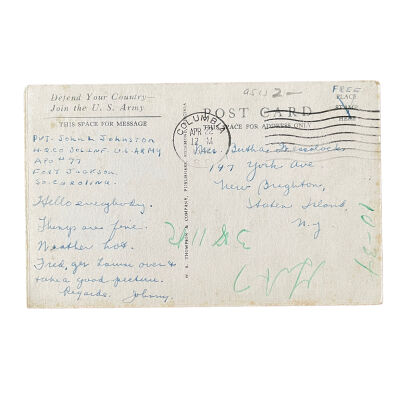 Defend Your Country—
Join the U. S. Army
THIS SPACE FOR MESSAGE
PVT. JOHN R JOHNSTON
HQ CO 301 INF. U.S. ARMY
APO # 77
FORT JACKSON
SO. CAROLINA.
Hello everybody.
Things are fine.
Weather hot.
Fred, get Laura over &
take a good picture.
Regards. Johnny.
W. R. THOMPSON & COMPANY, PUBLISHERS, RICHMOND, VIRGINIA
COLUMBIA
APR 22
12 M
2-
FREE
PLACE
STAMP
HERE
POST CARD
THIS SPACE FOR ADDRESS ONLY
Mrs. Bertha
147 York Ave
New Brighton,
Staten Island,
N.Y.
10-34